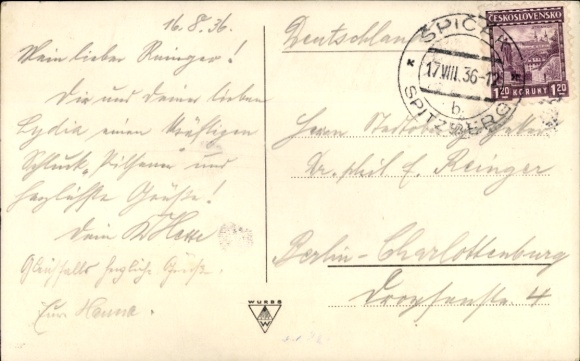 16.8.36.
Mein lieber Reinger!
Dir und Deiner lieben
Lydia einen kräftigen
Schluck "Pilsener" und
herzlichste Grüße!
Dein
Gleichfalls herzliche Grüße
Eure Hanna.
Deutschland
Herrn
Dr. phil. E. Reinger
Berlin-Charlottenburg
Droysenstr. 4
ČESKOSLOVENSKO
1.20 KORUNY 1.20
ŠPIČÁK
17.VIII.36
b
SPITZBERG
WURBS
W